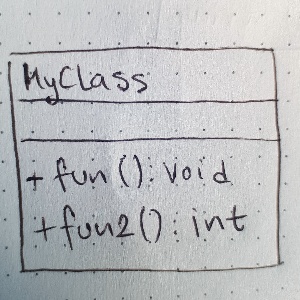 MyClass
+ fun(): void
+ fun2(): int